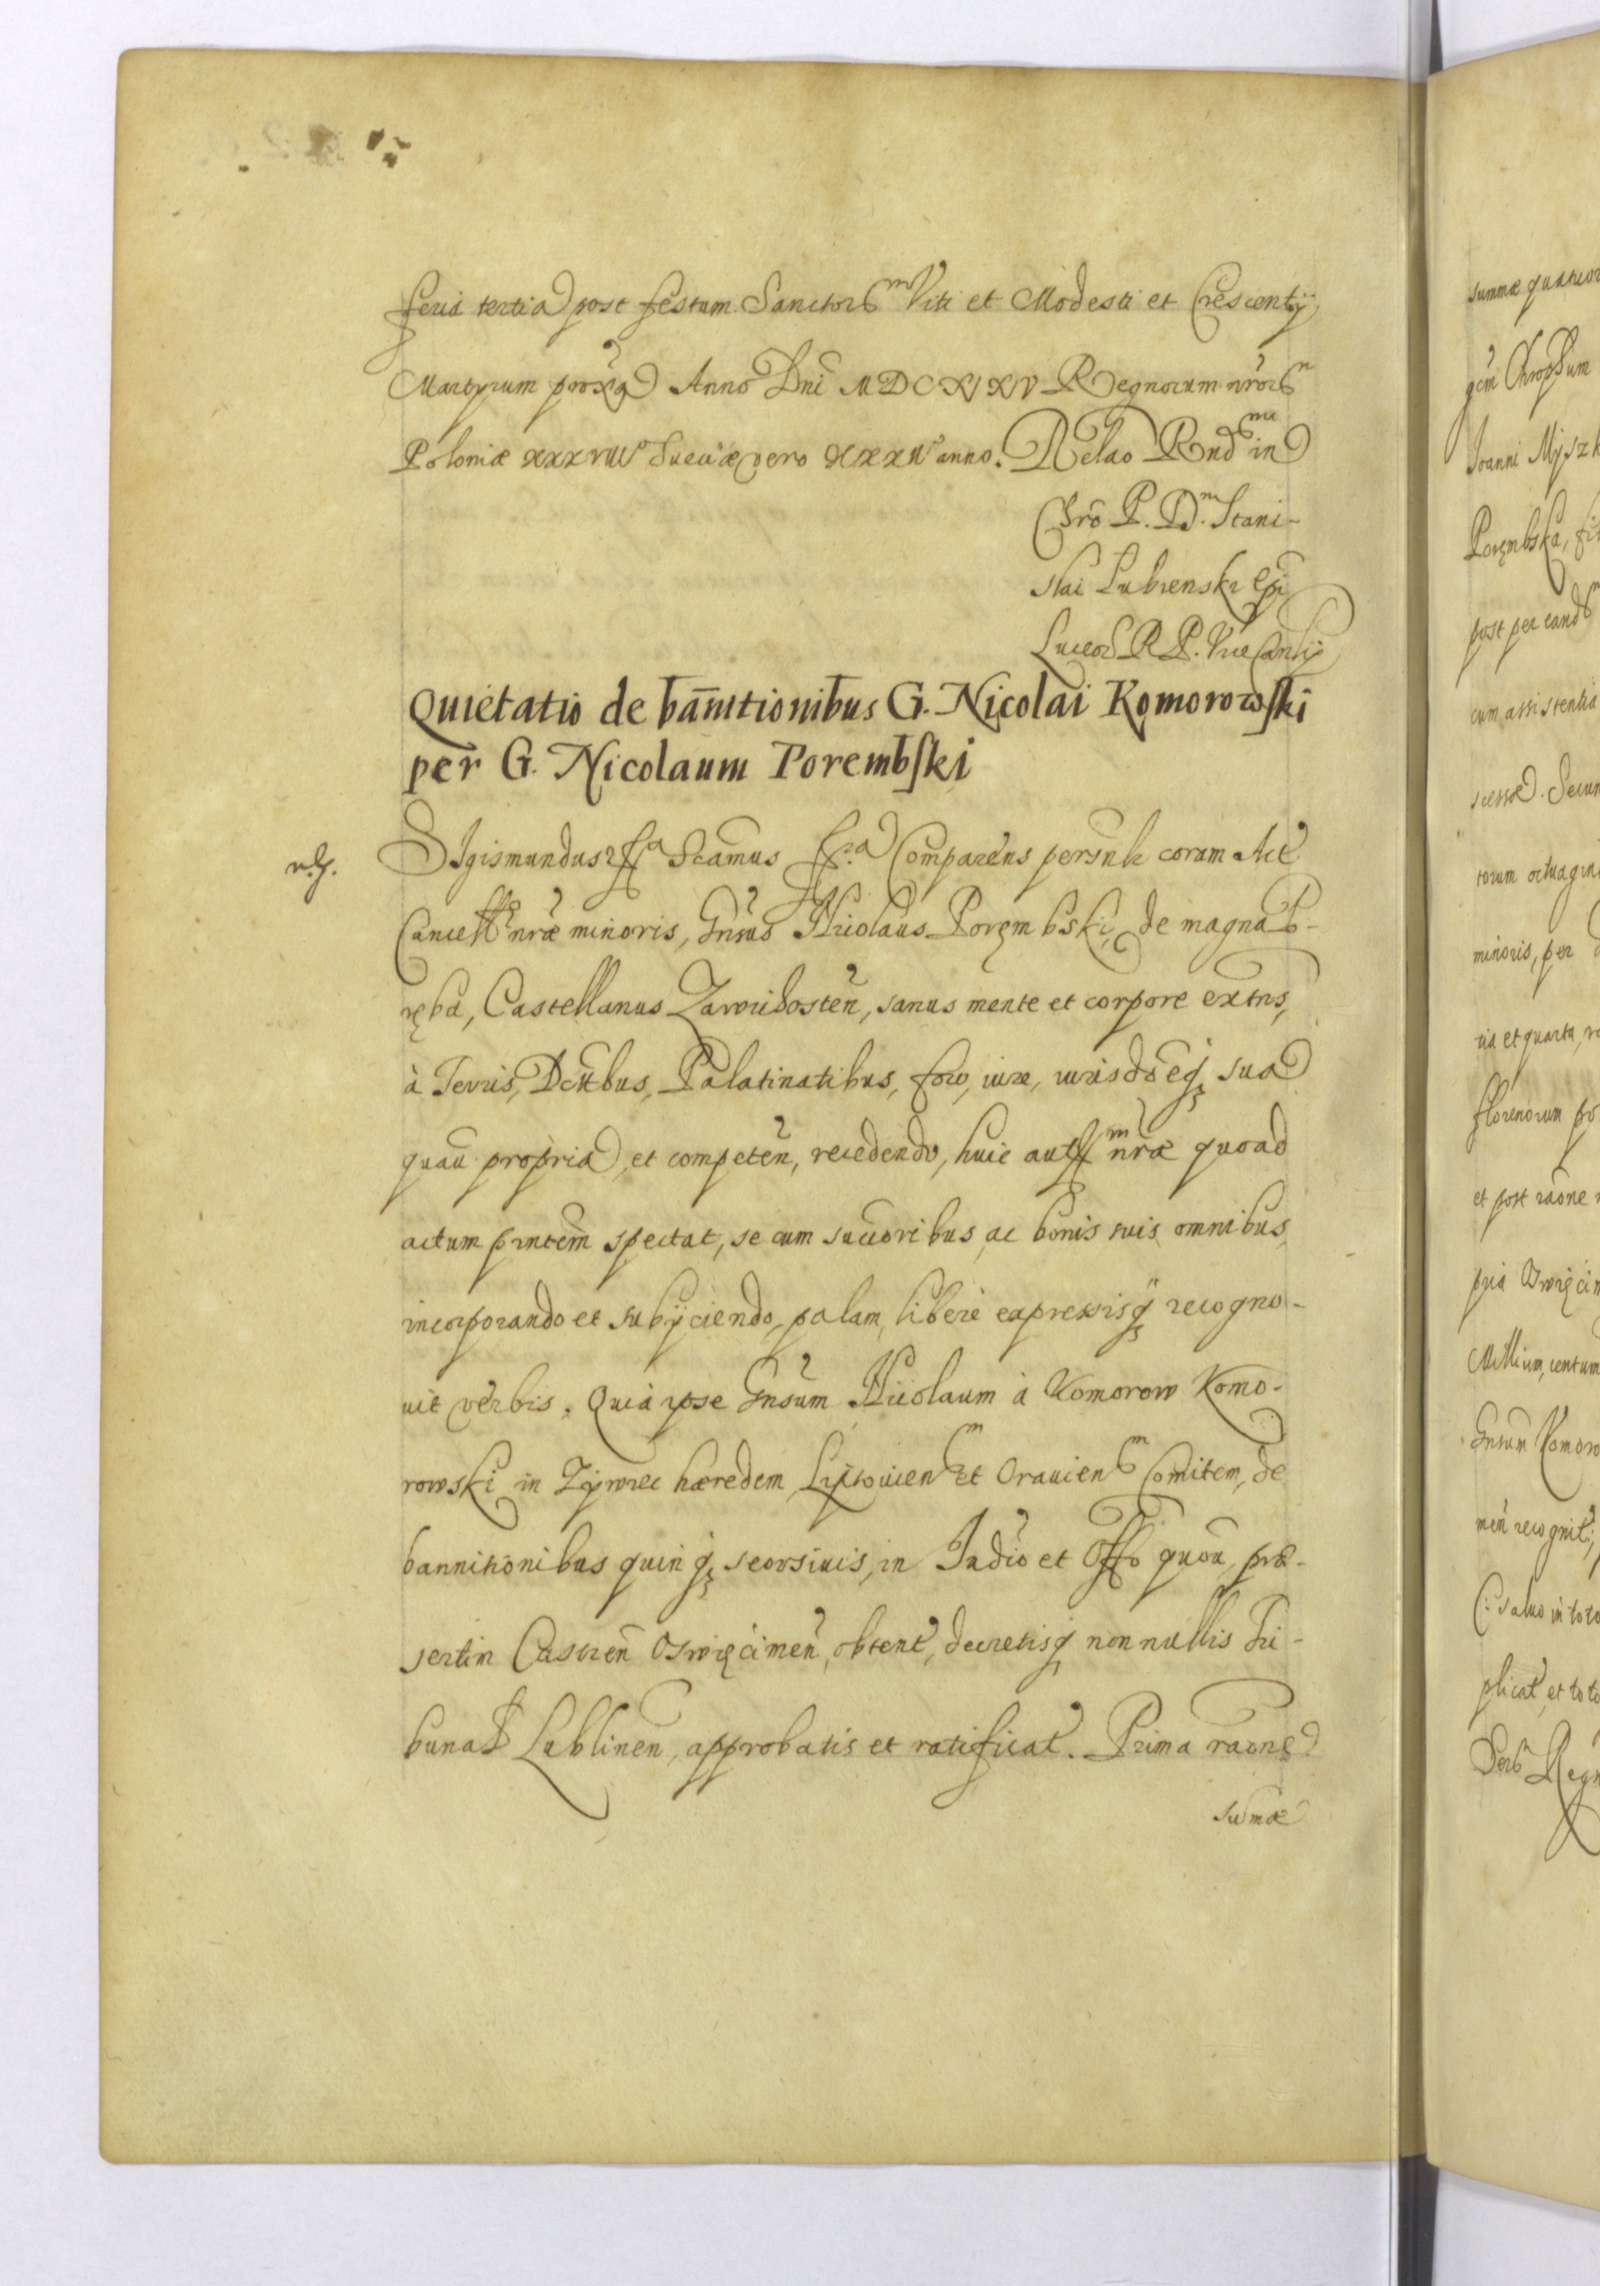 feria tertia post festum Sanctor᷑m Viti et Modesti et Crescentij
Martyrum prox̃a Anno Dnĩ MDCXXIV Regnorum nr̃or᷑m
Poloniæ xxxviiº Sueciæ vero xxxiº anno. Relao Rnd mi in
Chrõ P. D. Stani-
slai Lubienski Epĩ
Luceor R P. Vice Canlij
Quietatio de ban̄itionibus G. Nicolai Komorowski
per G. Nicolaum Porembski
SIgismundus Scam̃us Comparens persnlr coram Act
Cancell nræ minoris, Gnsus Nicolaus Poręmbski, de magna
ręba, Castellanus Zawichosten̄, sanus mente et corpore extns,
à Terris, Dcttbus, Palatinatibus, foro, iure, iurisdoeq sua
quau propria et competen̄, recedendo, huic autt m nræ quoad
actum pn̄tem̄ spectat, se cum succoribus ac bonis suis omnibus
incorporando et subijciendo, palam, libere expressisq recogno-
uit verbis. Quia ipse Gnsum Nicolaum à Komorow Komo-
rowski in Zywiec hæredem, Liptovien m et Oravien m Comitem, de
bannitionibus quinq seorsiuis, in Judio et Offo quou, præ-
sertim Castren̄ Oswięcimen̄, obtent, decretisq non nullis Tri-
bunal Lublinen̄, approbatis et ratificat. Prima raone
sūmæ
summæ quatuor
Joanni Myszk
Porembska, fi
post per eand
cum assistentia
minoris, per
tia et quarta, r
florenorum po
et post raone
Millium, centum
Gnsum Komoro
men̄ recognit,
salvo in toto
plicat, et toto
Regn